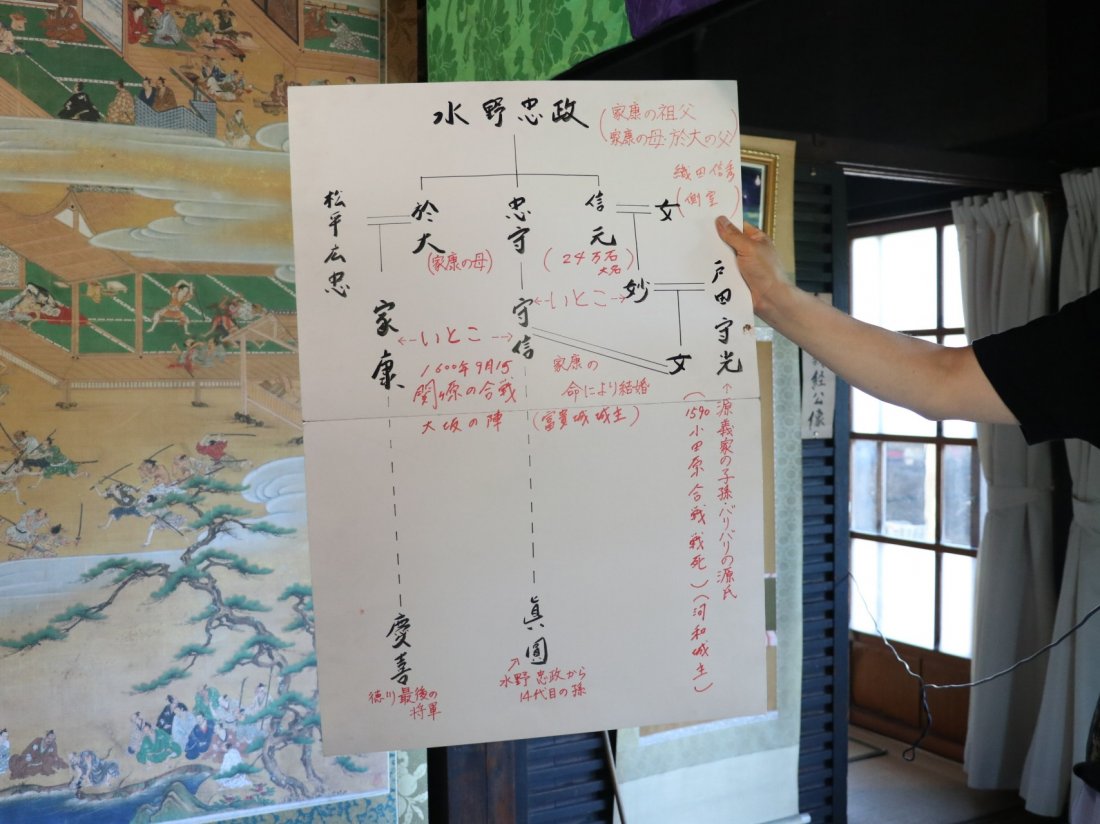 水野忠政
(家康の祖父
家康の母・於大の父)
織田信秀
(側室)
松平広忠
於大
(家康の母)
忠守
信元
(24万石
大名)
女
戸田守光
妙
←いとこ→
家康
←いとこ→
守信
女
1600年9月15
関ヶ原の合戦
大坂の陣
家康の
命により結婚
(富貴城城主)
↑源義家の子孫・バリバリの源氏
(1590小田原合戦戦死)(河和城主)
慶喜
徳川最後の
将軍
眞圓
↑水野忠政から
14代目の孫
経公像